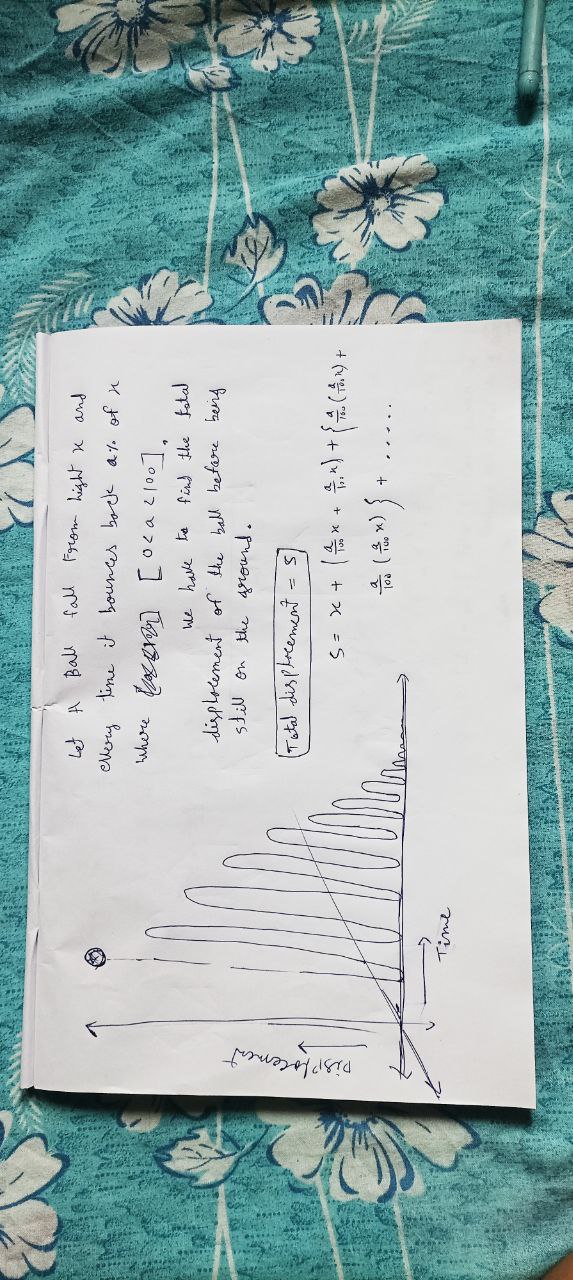 Let A Ball fall from hight x and
every time it bounces back a% of x
where [0<a<100],
we have to find the total
displacement of the ball before being
still on the ground.
Total displacement = S
S = x + (a/100 x + a/100 x) + {a/100 (a/100 x) +
a/100 (a/100 x)} + .....
Displacement
Time